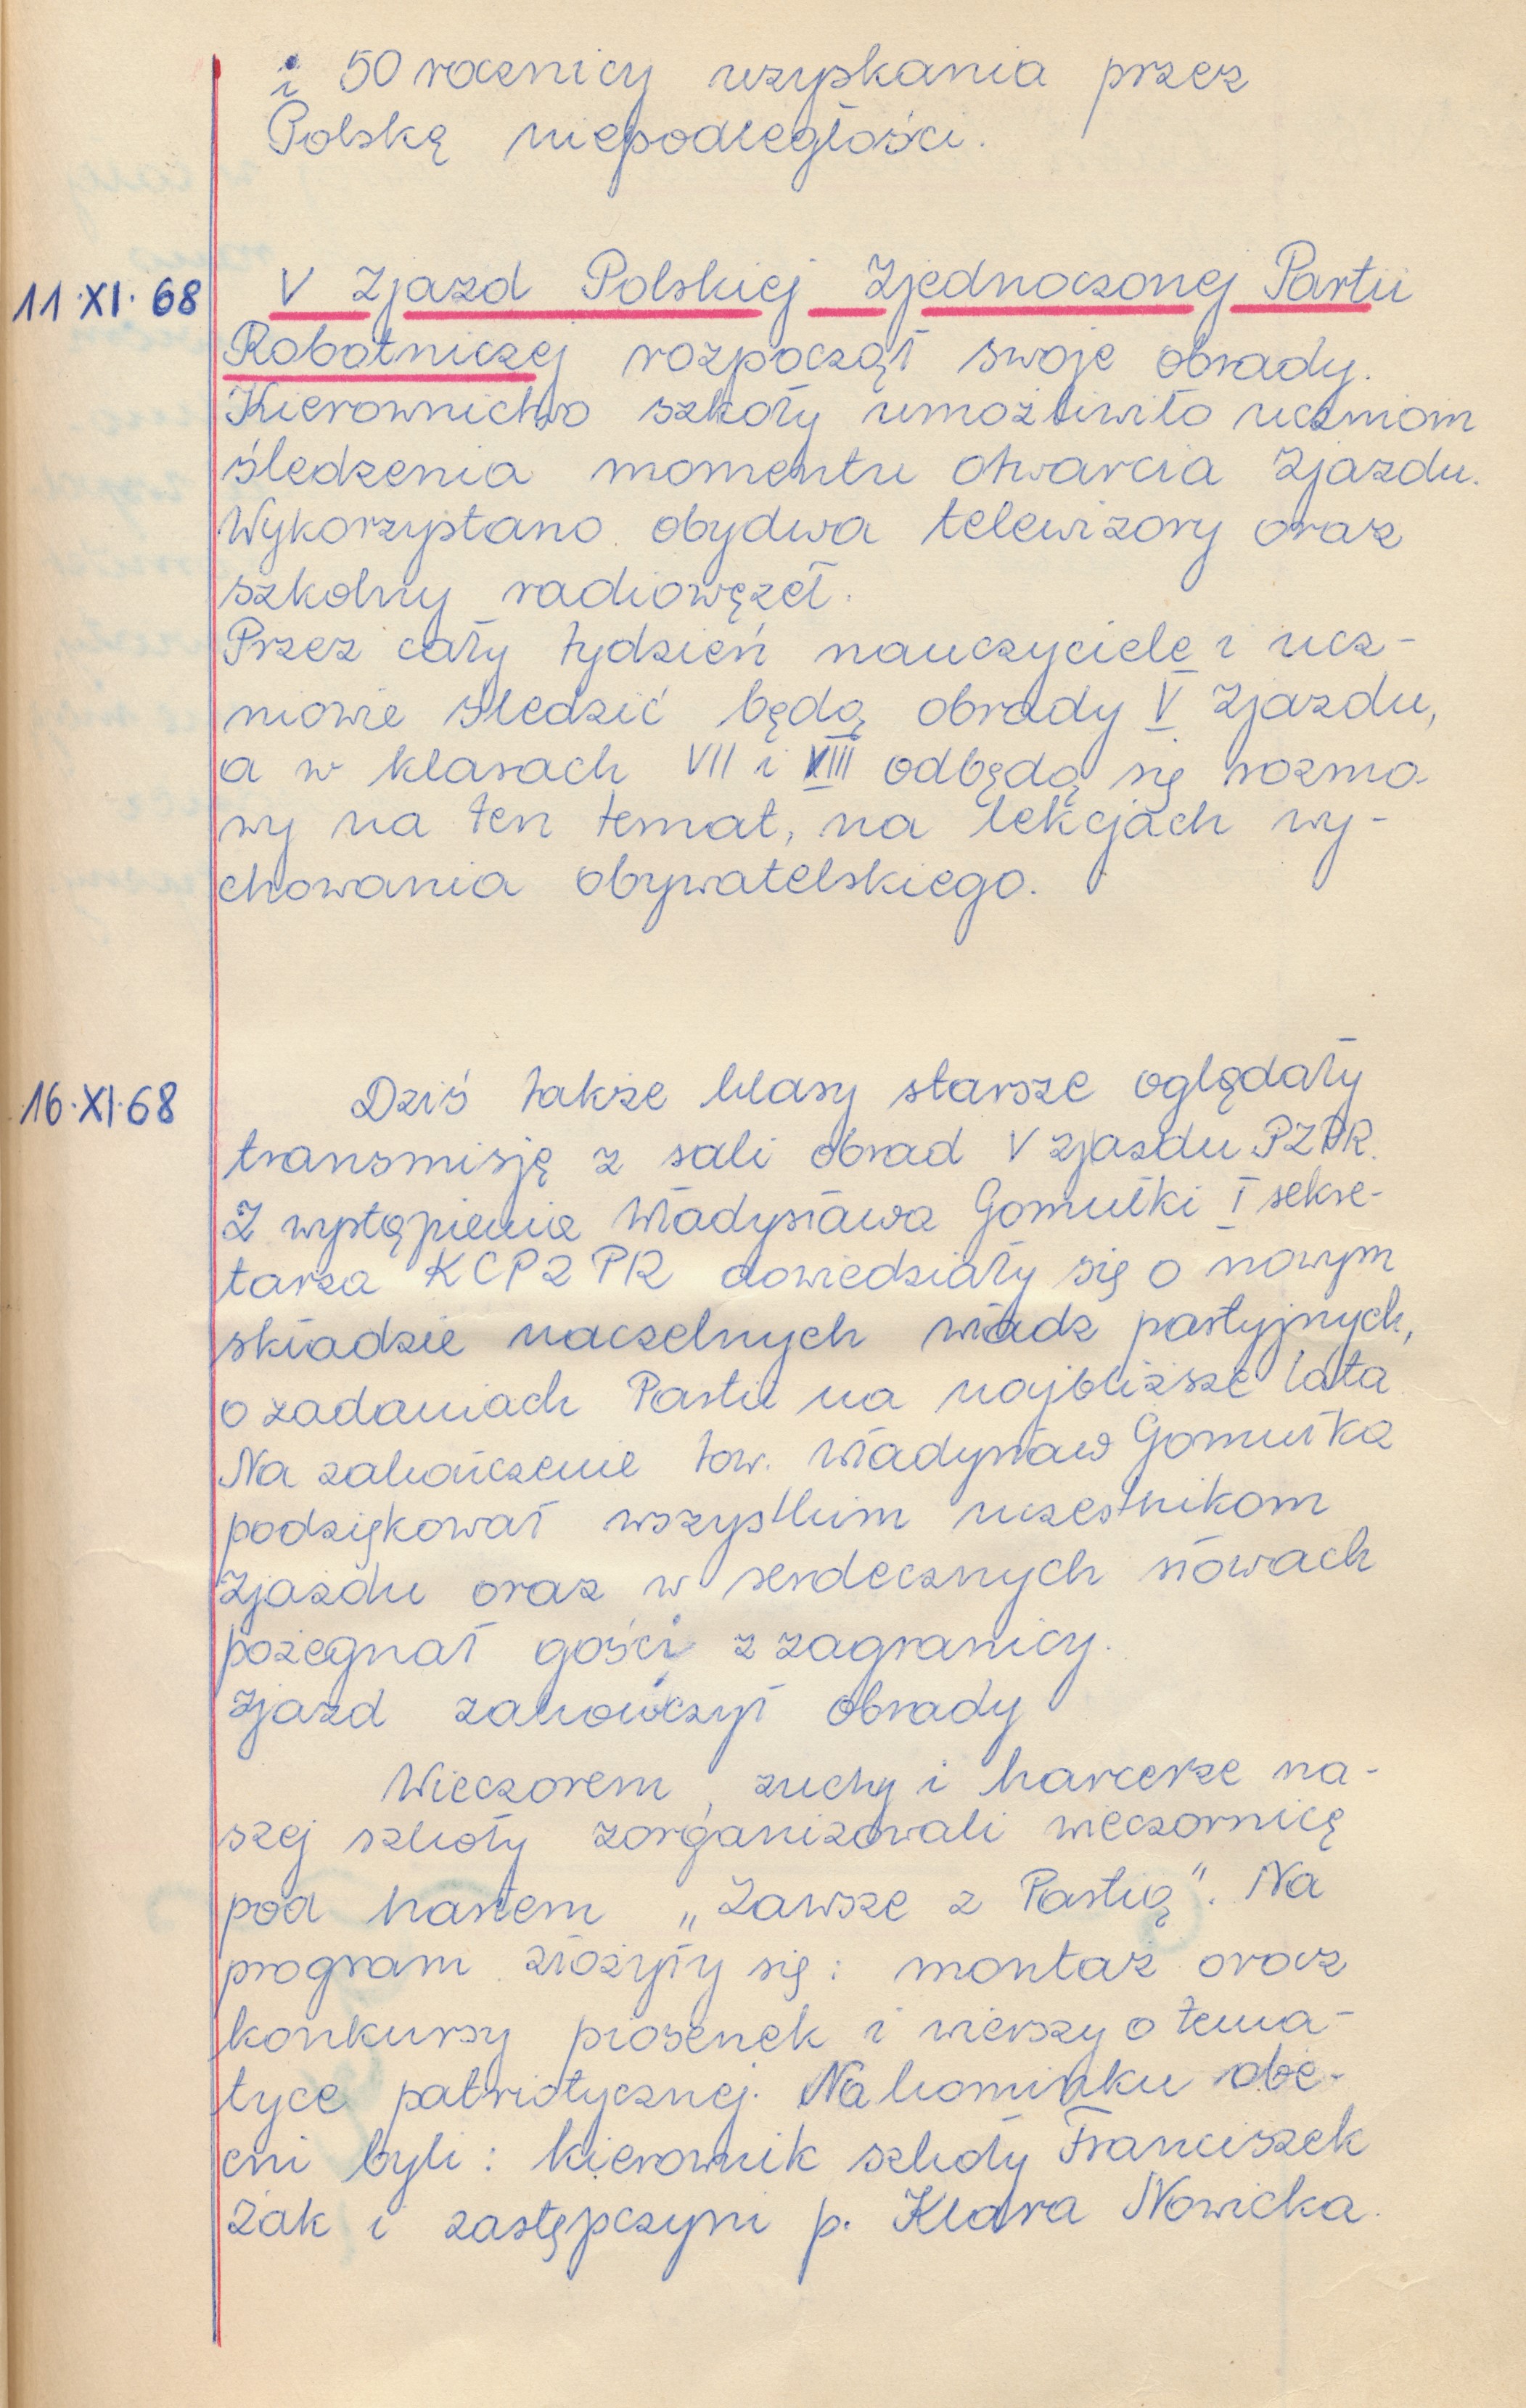 i 50 rocznicy uzyskania przez
Polskę niepodległości.
11.XI.68 V Zjazd Polskiej Zjednoczonej Partii
Robotniczej rozpoczął swoje obrady.
Kierownictwo szkoły umożliwiło uczniom
śledzenia momentu otwarcia Zjazdu.
Wykorzystano obydwa telewizory oraz
szkolny radiowęzeł.
Przez cały tydzień nauczyciele i ucz-
niowie śledzić będą obrady V Zjazdu,
a w klasach VII i VIII odbędą się rozmo
wy na ten temat, na lekcjach wy-
chowania obywatelskiego.
16.XI.68 Dziś także klasy starsze oglądały
transmisję z sali obrad V zjazdu PZPR.
Z wystąpienia Władysława Gomułki I sekre-
tarza KCPZPR dowiedziały się o nowym
składzie naczelnych władz partyjnych,
o zadaniach Partii na najbliższe lata
Na zakończenie tow. Władysław Gomułka
podziękował wszystkim uczestnikom
Zjazdu oraz w serdecznych słowach
pożegnał gości z zagranicy.
Zjazd zakończył obrady
Wieczorem, zuchy i harcerze na-
szej szkoły zorganizowali wieczornicę
pod hasłem „Zawsze z Partią". Na
program złożyły się: montaż oraz
konkursy piosenek i wierszy o tema-
tyce patriotycznej. Na kominku obe-
cni byli: kierownik szkoły Franciszek
Żak i zastępczyni p. Klara Nowicka.